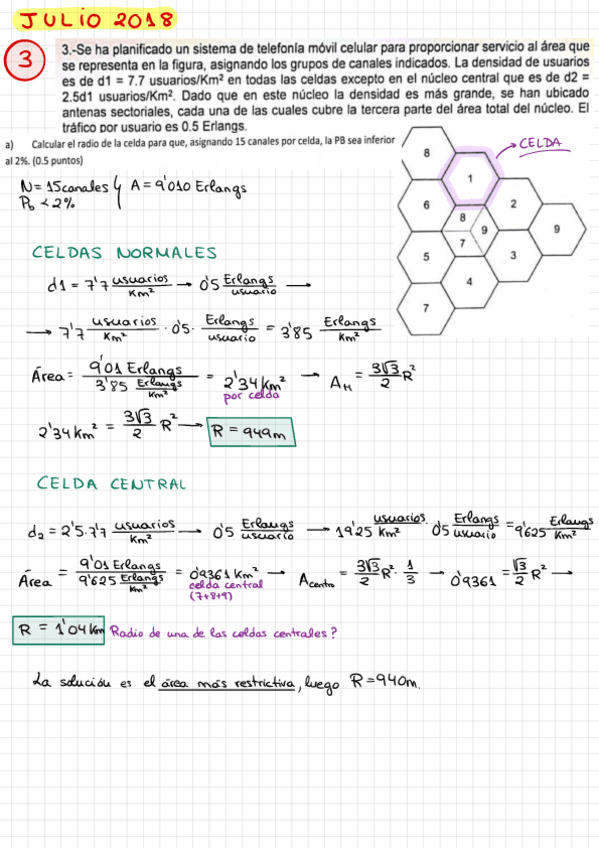 JULIO 2018
3
3.-Se ha planificado un sistema de telefonía móvil celular para proporcionar servicio al área que
se representa en la figura, asignando los grupos de canales indicados. La densidad de usuarios
es de d1 = 7.7 usuarios/Km² en todas las celdas excepto en el núcleo central que es de d2 =
2.5d1 usuarios/Km². Dado que en este núcleo la densidad es más grande, se han ubicado
antenas sectoriales, cada una de las cuales cubre la tercera parte del área total del núcleo. El
tráfico por usuario es 0.5 Erlangs.
a) Calcular el radio de la celda para que, asignando 15 canales por celda, la PB sea inferior
al 2%. (0.5 puntos)
CELDA
8
1
6
2
8
9
9
7
5
3
4
7
N = 15 canales } A = 9'010 Erlangs
Pb < 2%
CELDAS NORMALES
d1 = 7'7 usuarios/Km² → 0'5 Erlangs/usuario →
→ 7'7 usuarios/Km² · 0'5 · Erlangs/usuario = 3'85 Erlangs/Km²
Área = 9'01 Erlangs / 3'85 Erlangs/Km² = 2'34 Km² → A_H = 3√3/2 R²
por celda
2'34 Km² = 3√3/2 R² → R = 949m
CELDA CENTRAL
d₂ = 2'5·7'7 usuarios/Km² → 0'5 Erlangs/usuario → 19'25 usuarios/Km² · 0'5 Erlangs/usuario = 9'625 Erlangs/Km²
Área = 9'01 Erlangs / 9'625 Erlangs/Km² = 0'9361 Km² → A centro = 3√3/2 R² · 1/3 → 0'9361 = √3/2 R² →
celda central
(7+8+9)
R = 1'04 Km Radio de una de las celdas centrales?
La solución es el área más restrictiva, luego R = 940m.